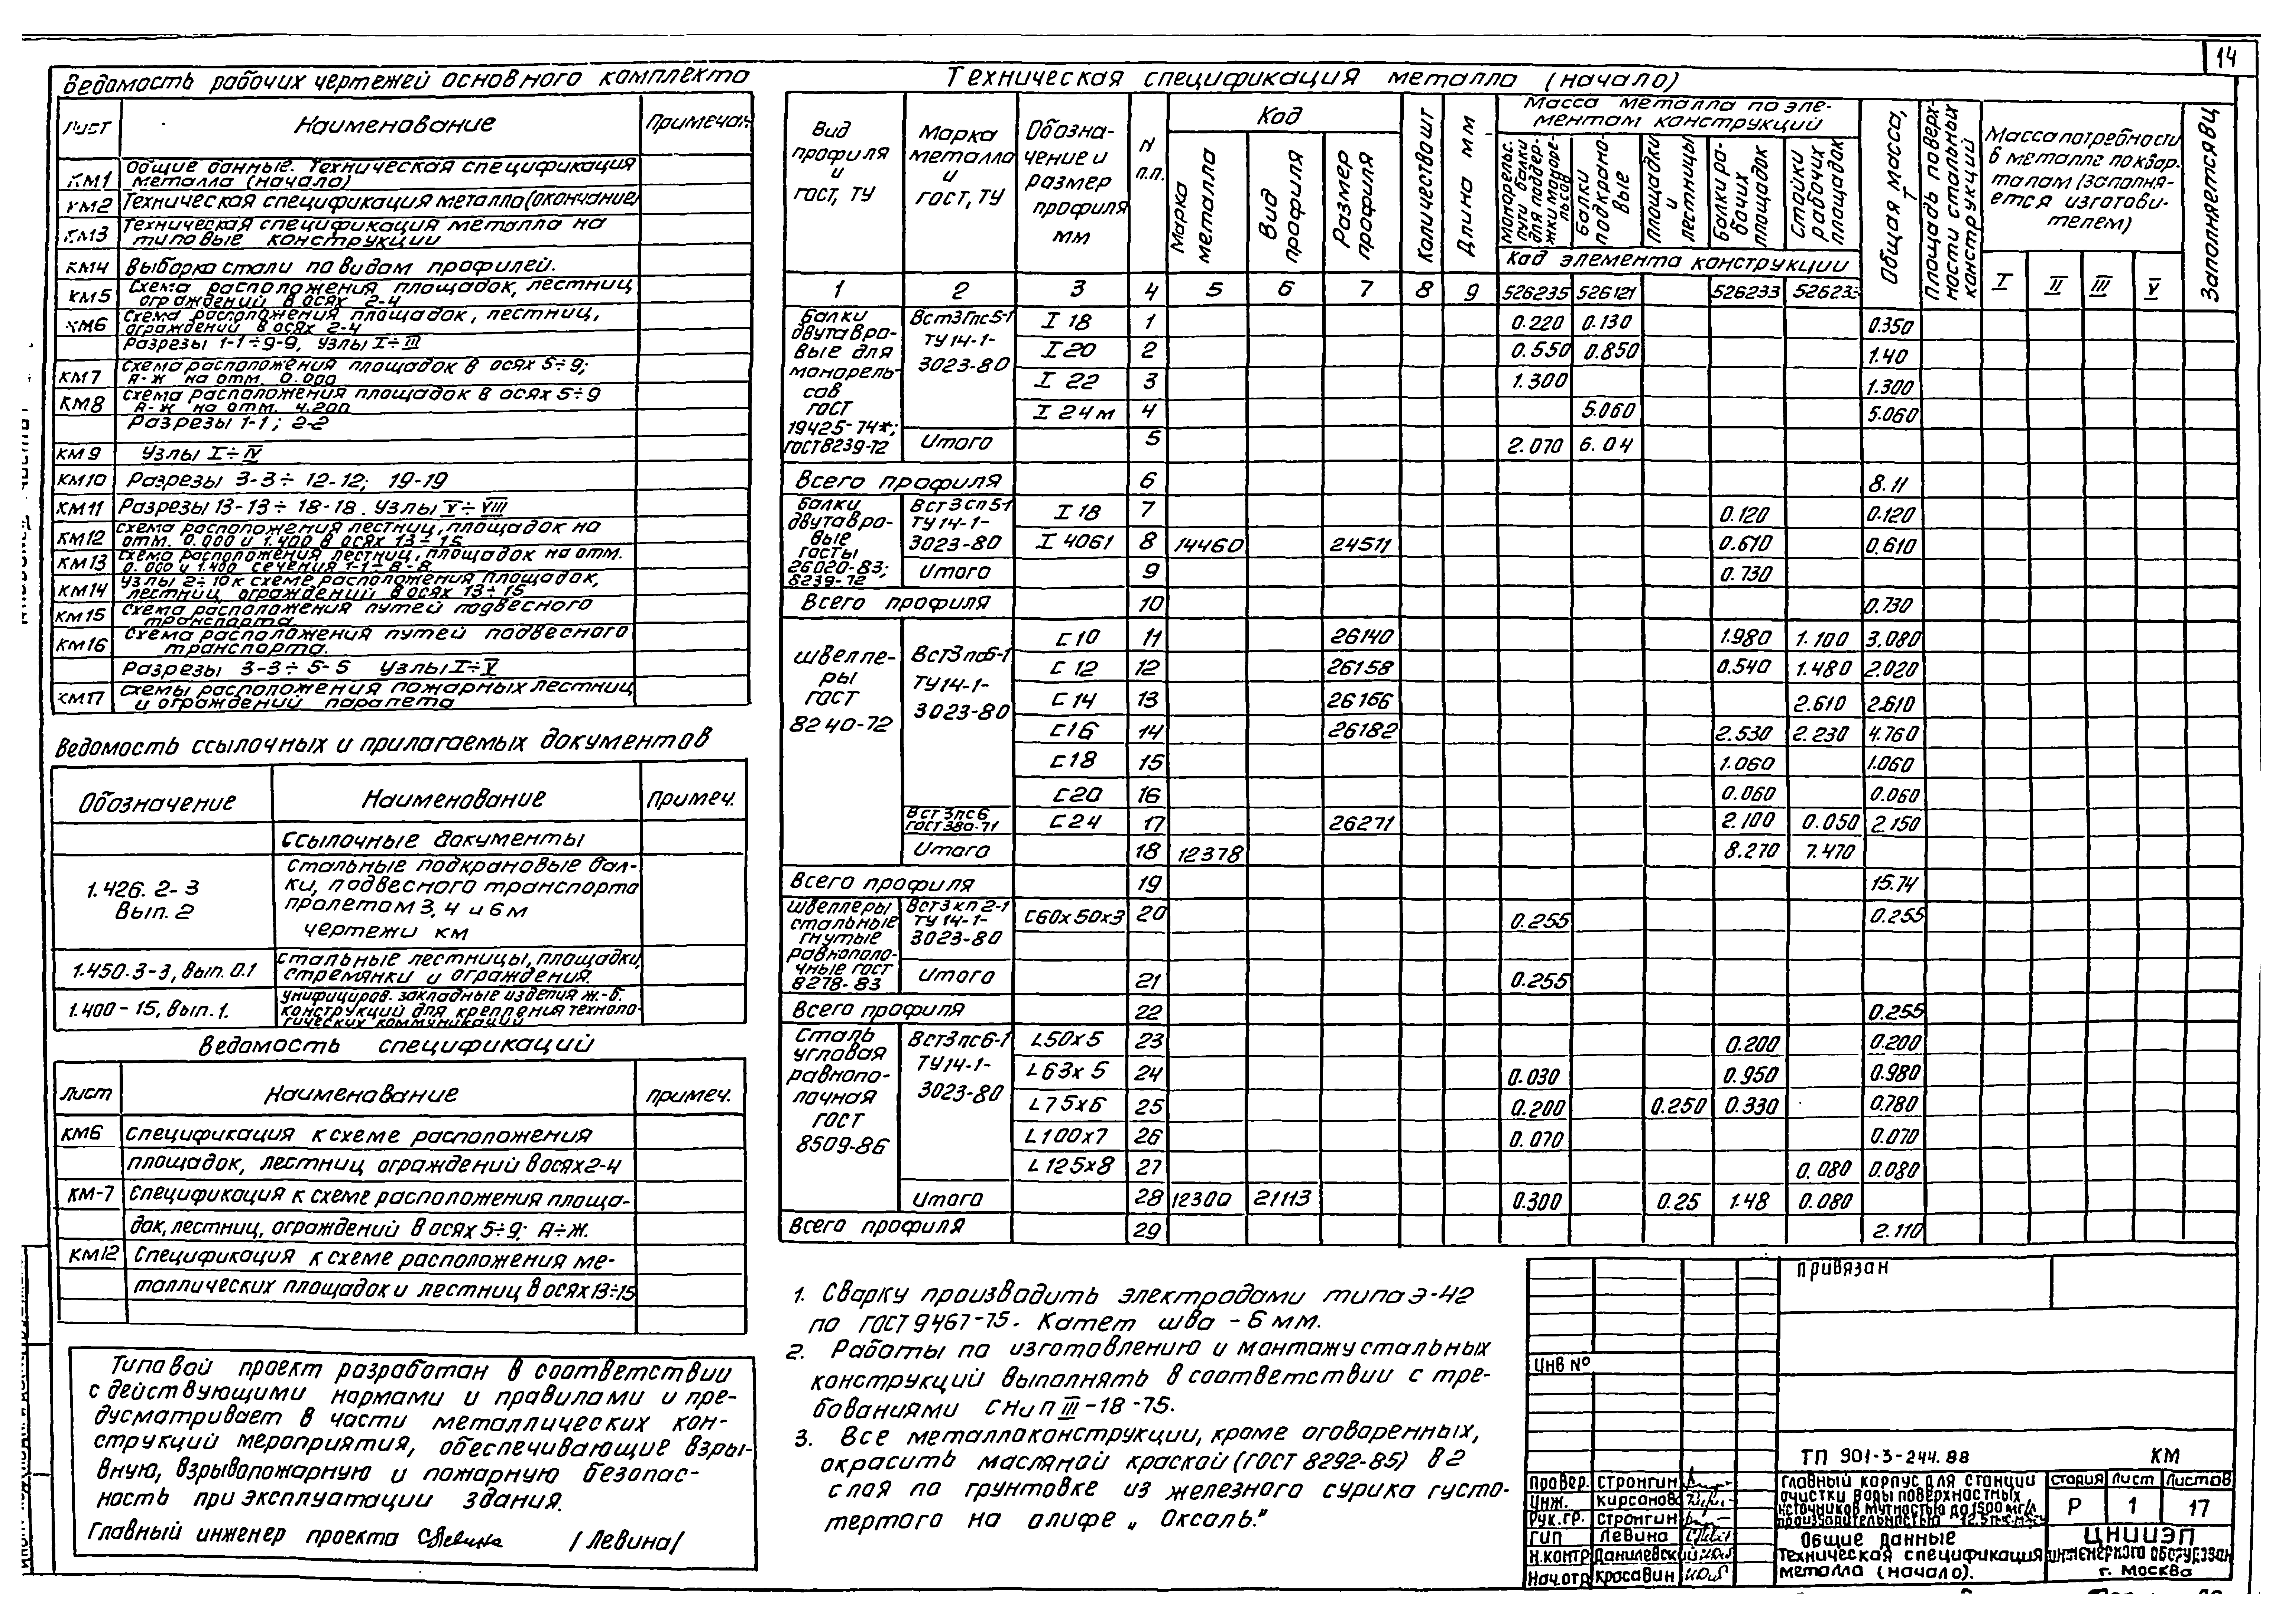 14
Ведомость рабочих чертежей основного комплекта
Лист Наименование Примечан.
КМ1 Общие данные. Техническая спецификация
металла (начало)
КМ2 Техническая спецификация металла (окончание)
КМ3 Техническая спецификация металла на
типовые конструкции
КМ4 Выборка стали по видам профилей.
КМ5 Схема расположения площадок, лестниц
ограждений в осях 2-4
КМ6 Схема расположения площадок, лестниц,
ограждений в осях 2-4
Разрезы 1-1÷9-9, узлы I÷III
КМ7 Схема расположения площадок в осях 5÷9;
А-Ж на отм. 0.000
КМ8 Схема расположения площадок в осях 5÷9
А-Ж на отм. 4.200
Разрезы 1-1; 2-2
КМ9 Узлы I÷IV
КМ10 Разрезы 3-3÷12-12; 19-19
КМ11 Разрезы 13-13÷18-18. Узлы V÷VIII
КМ12 Схема расположения лестниц, площадок на
отм. 0.000 и 1.400 в осях 13÷15
КМ13 Схема расположения лестниц, площадок на отм.
0.000 и 1.400 сечения 1-1÷8-8
КМ14 Узлы 2÷10 к схеме расположения площадок,
лестниц, ограждений в осях 13÷15
КМ15 Схема расположения путей подвесного
транспорта
КМ16 Схема расположения путей подвесного
транспорта.
Разрезы 3-3÷5-5 Узлы I÷V
КМ17 Схемы расположения пожарных лестниц
и ограждений парапета
Ведомость ссылочных и прилагаемых документов
Обозначение Наименование Примеч.
Ссылочные документы
1.426.2-3 Вып. 2 Стальные подкрановые бал-
ки, подвесного транспорта
пролетом 3, 4 и 6м
чертежи КМ
1.450.3-3, Вып. 0.1 Стальные лестницы, площадки,
стремянки и ограждения.
1.400-15, Вып. 1. Унифициров. закладные изделия ж.-б.
конструкций для крепления техноло-
гических коммуникаций
Ведомость спецификаций
Лист Наименование Примеч.
КМ6 Спецификация к схеме расположения
площадок, лестниц ограждений в осях 2-4
КМ-7 Спецификация к схеме расположения площа-
док, лестниц, ограждений в осях 5÷9; А÷Ж.
КМ12 Спецификация к схеме расположения ме-
таллических площадок и лестниц в осях 13÷15
Типовой проект разработан в соответствии
с действующими нормами и правилами и пре-
дусматривает в части металлических кон-
струкций мероприятия, обеспечивающие взры-
вную, взрывопожарную и пожарную безопас-
ность при эксплуатации здания.
Главный инженер проекта /Левина/
Техническая спецификация металла (начало)
Вид профиля и ГОСТ, ТУ
Марка металла и ГОСТ, ТУ
Обозначение и размер профиля мм
N п.п.
Код
Марка металла
Вид профиля
Размер профиля
Количество шт
Длина мм
Масса металла по эле-
ментам конструкций
Монорельс. пути балки для поддержки
Балки подкрановые
Площадки и лестницы
Балки рабочих площадок
Стойки рабочих площадок
Код элемента конструкции
Общая масса, т
Площадь поверхности стальных конструкций
Масса потребности
в металле по квар-
талам (заполня-
ется изготови-
телем)
I II III V
Заполняется ВЦ
1 2 3 4 5 6 7 8 9 526235 526121 526233 526233
Балки двутавровые для монорельсов ГОСТ 19425-74*; ГОСТ 8239-72
ВСт3Гпс5-1 ТУ14-1-3023-80
I 18 1 0.220 0.130 0.350
I 20 2 0.550 0.850 1.40
I 22 3 1.300 1.300
I 24м 4 5.060 5.060
Итого 5 2.070 6.04
Всего профиля 6 8.11
Балки двутавровые госты 26020-83; 8239-72
ВСт3сп5-1 ТУ14-1-3023-80
I 18 7 0.120 0.120
I 40б1 8 14460 24511 0.610 0.610
Итого 9 0.730
Всего профиля 10 0.730
Швеллеры ГОСТ 8240-72
ВСт3пс6-1 ТУ14-1-3023-80
С10 11 26140 1.980 1.100 3.080
С12 12 26158 0.540 1.480 2.020
С14 13 26166 2.610 2.610
С16 14 26182 2.530 2.230 4.760
С18 15 1.060 1.060
С20 16 0.060 0.060
ВСт3пс6 ГОСТ380-71 С24 17 26271 2.100 0.050 2.150
Итого 18 12378 8.270 7.470
Всего профиля 19 15.74
Швеллеры стальные гнутые равнополочные ГОСТ 8278-83
ВСт3кп2-1 ТУ14-1-3023-80
С60х50х3 20 0.255 0.255
Итого 21 0.255
Всего профиля 22 0.255
Сталь угловая равнополочная ГОСТ 8509-86
ВСт3пс6-1 ТУ14-1-3023-80
L50х5 23 0.200 0.200
L63х5 24 0.030 0.950 0.980
L75х6 25 0.200 0.250 0.330 0.780
L100х7 26 0.070 0.070
L125х8 27 0.080 0.080
Итого 28 12300 21113 0.300 0.25 1.48 0.080
Всего профиля 29 2.110
1. Сварку производить электродами типа Э-42
по ГОСТ 9467-75. Катет шва - 6 мм.
2. Работы по изготовлению и монтажу стальных
конструкций выполнять в соответствии с тре-
бованиями СНиП III-18-75.
3. Все металлоконструкции, кроме оговоренных,
окрасить масляной краской (ГОСТ 8292-85) в 2
слоя по грунтовке из железного сурика густо-
тертого на олифе „Оксоль."
Привязан
Инв №
ТП 901-3-244.88 КМ
Провер. Стронгин
Инж. Кирсанова
Рук.гр. Стронгин
ГИП Левина
Н.контр Данилевский
Нач.отд Красавин
Главный корпус для станции
очистки воды поверхностных
источников мутностью до 1500 мг/л
производительностью
Стадия Лист Листов
Р 1 17
Общие данные
Техническая спецификация
металла (начало).
ЦНИИЭП
инженерного оборудован
г. Москва